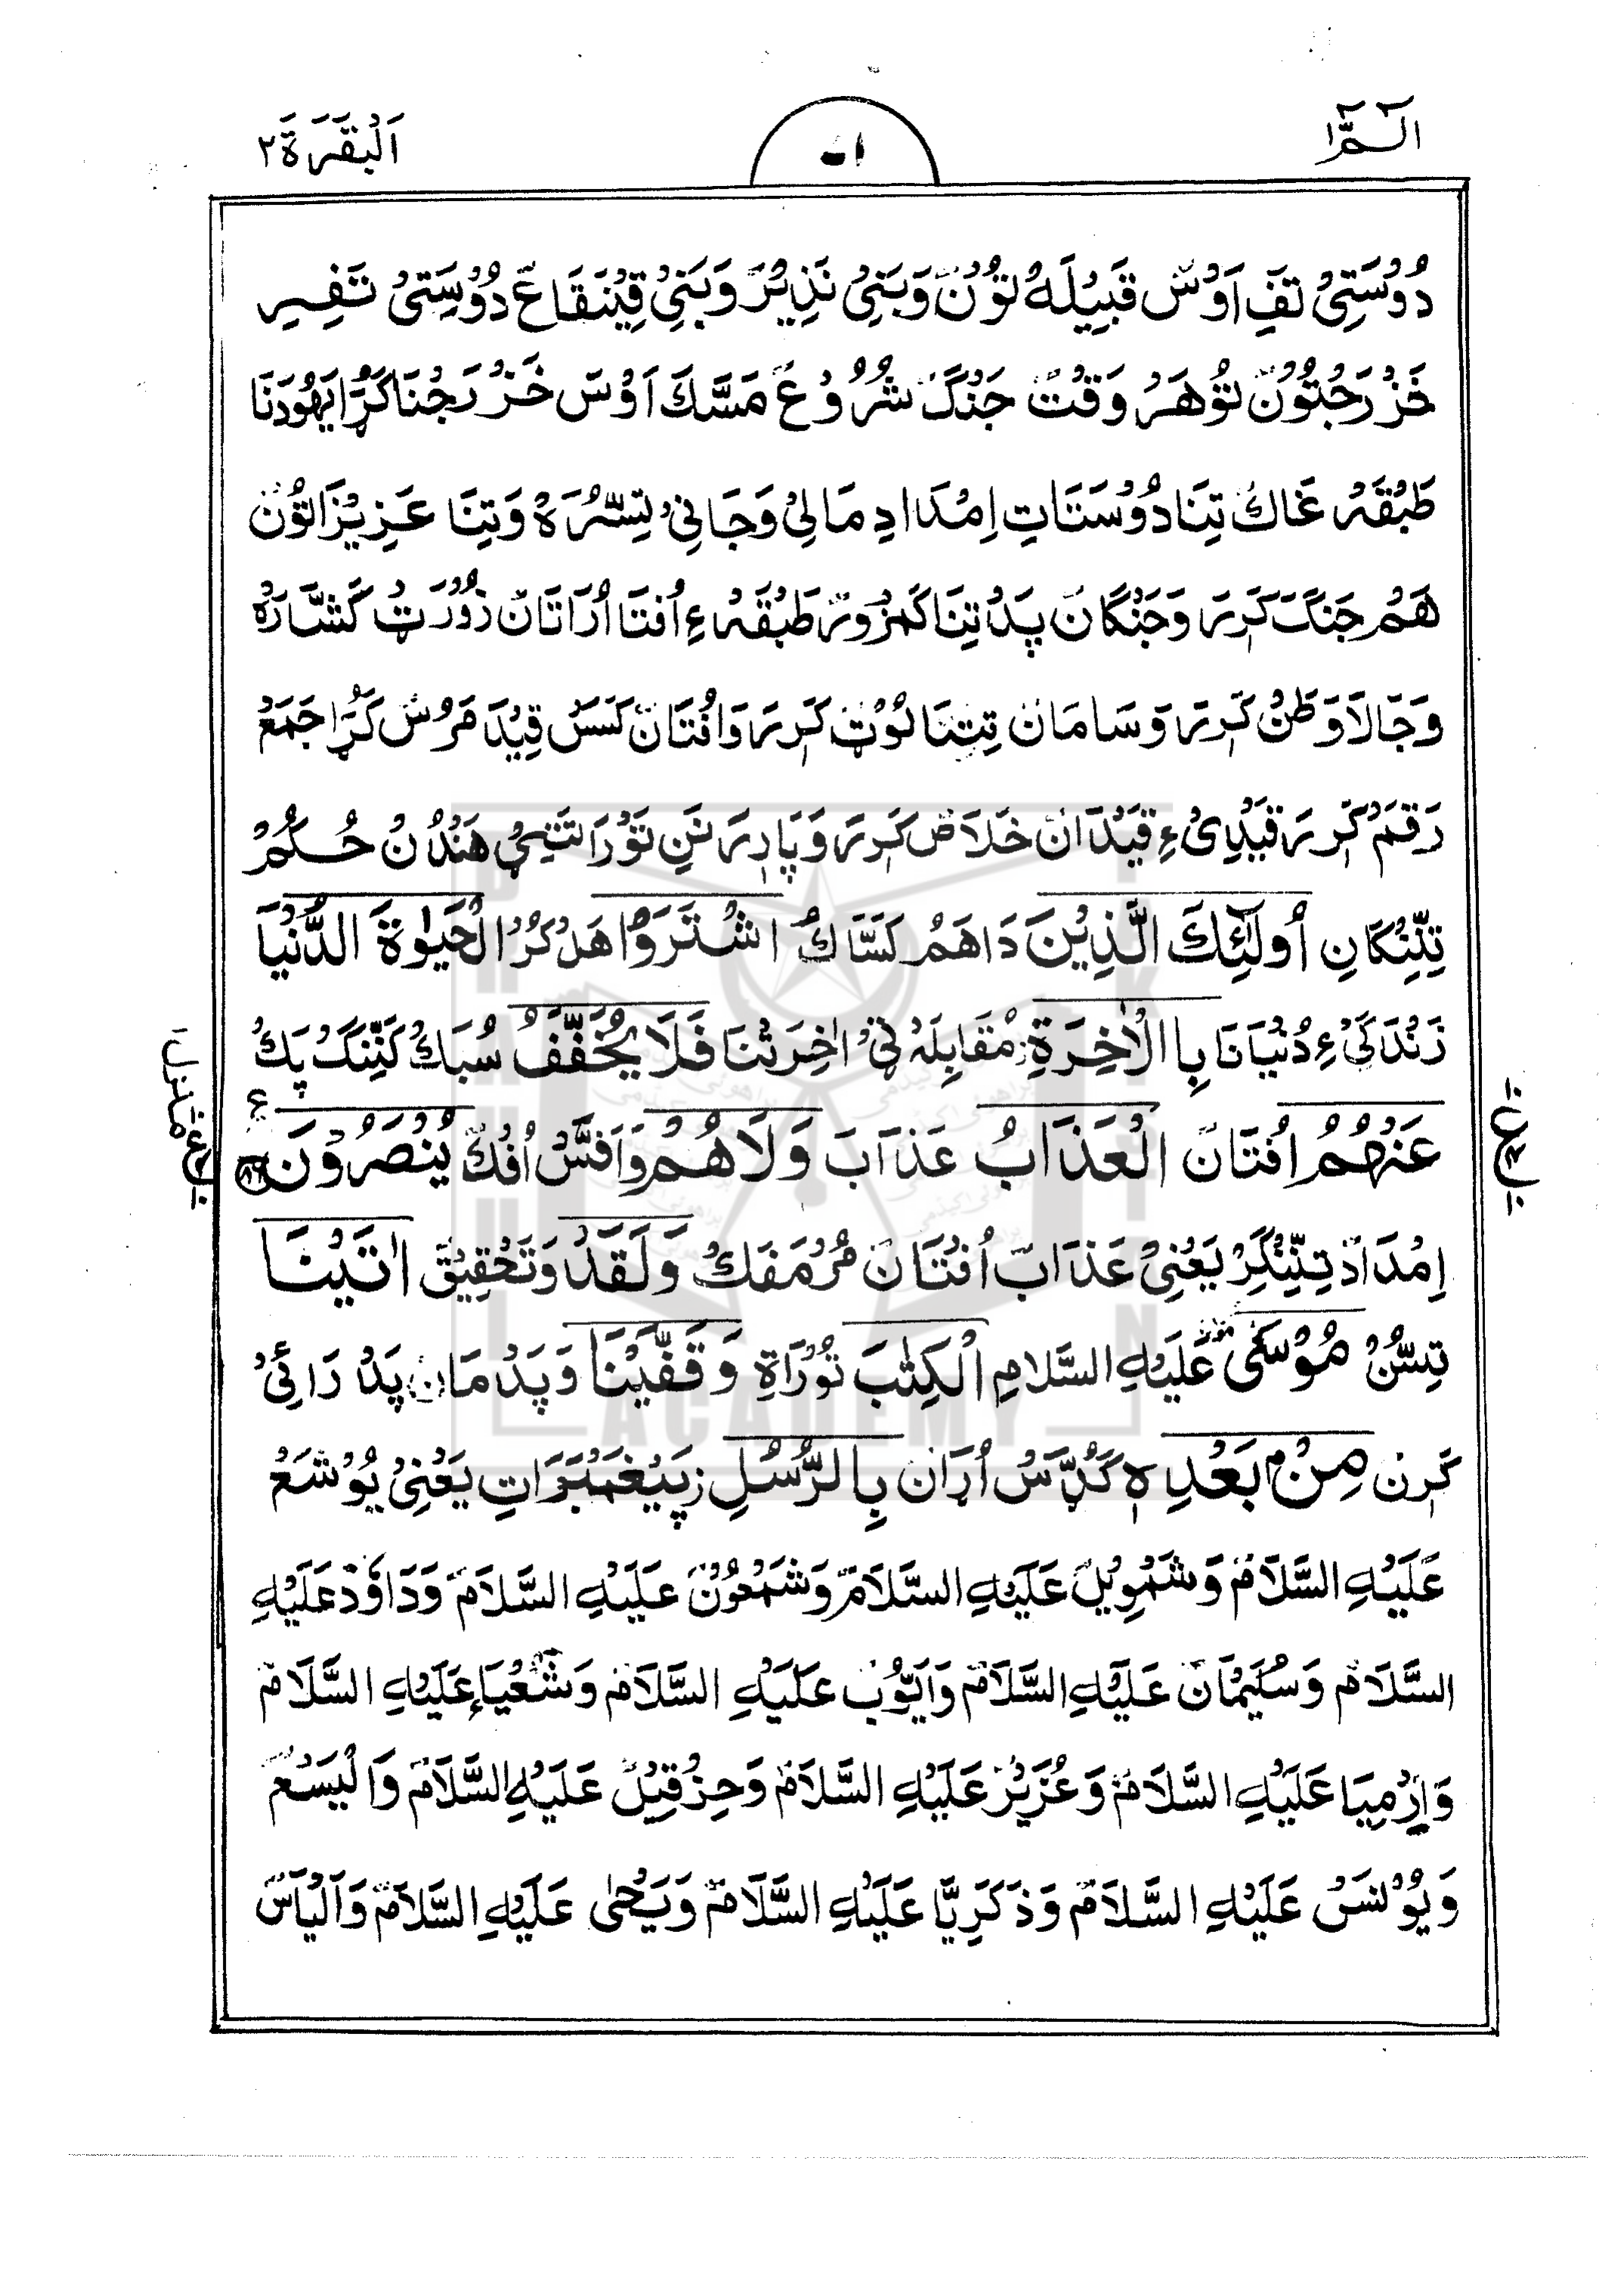 الٓمّٓ ۱
۵۱
اَلْبَقَرَة ۲
دُوْسَتِیْ تفِ اَوْس قَبِیْلَهْ توْن وَبَنِیْ نَذِیْر وَبَنِیْ قِیْنقَاع دُوْسِتیْ تَفِسِر
خَزْرَجْتُوْن توْ هَرْ وَقْت جَنْگ شُرُوْع مَسَّکَ اَوْس خَزْرَجْنَا کَرَّا یَهُوْدنَا
طَبْقَهْ غَاكْ تِنَا دُوْسَتَاتِ اِمْدَادِ مَالِیْ وَجَانِیْ تِسُّرَهْ وَتِنَا عَزِیْزَاتوْن
هَمْ جَنگ کَرِرَ وَجَنْگان پَدْ تِنَا کَمْزوْر طَبْقَهْ ءِ اُفتَا اُرَاتَان زُوْرَتْ کَشَّارَهْ
وَجَالَا وَطَنْ کَرِرَ وَسَامَان تِتنَا لُوْٹ کَرِرَ وَاُفْتَان کَسَس قِیْدَ مَرُسْ کَرَّا جَمَعْ
رَقَمْ کَرِرَ قَیْدِیْ ءِ قَیْدَان خَلَاص کَرِرَ وَپَادِرَ نَنِ تَوْرَاتَٹِیْ هَنْدُنْ حُکُمْ
تِنِّنگانِ اُولٰٓئِكَ الَّذِیْنَ دَاهَمْ کَسَّاكْ اشْتَرَوُا هَلْکُرْ الْحَیٰوةَ الدُّنْیَا
زَنْدَگیْ ءِ دُنْیَانَا بِالْاٰخِرَةِ مُقَابِلَهْ ٹیْ اٰخِرَتْنَا فَلَا یُخَفَّفُ سُبَاكْ کَنِّنگ پَكْ
عَنْهُمُ اُفْتَان الْعَذَابُ عَذَاب وَلَا هُمْ وَاَفَسْ اُفْكْ یُنْصَرُوْنَ ۸۶
اِمْدَاد تِنِّنگِرْ یَعْنِیْ عَذَاب اُفْتَان مُرْمَفَكْ وَلَقَدْ وَتَحْقِیْق اٰتَیْنَا
تِسُّنْ مُوْسَی عَلَیْهِ السَّلَامِ الْکِتٰبَ تُوْرَاةِ وَقَفَّیْنَا وَپَدْمَان پَدْ رَائیْ
کَرِن مِنْۢ بَعْدِهٖ گُدَّسْ اُرَان بِالرُّسُلِ پَیْغَمْبَرَاتِ یَعْنِیْ یُوْشَعْ
عَلَیْهِ السَّلَام وَشَمْوِیْل عَلَیْهِ السَّلَام وَشَمْعُوْن عَلَیْهِ السَّلَام وَدَاوٗد عَلَیْهِ
السَّلَام وَسُلَیْمَان عَلَیْهِ السَّلَام وَاَیُّوْب عَلَیْهِ السَّلَام وَشَعْیَاءِ عَلَیْهِ السَّلَام
وَاِرْمِیَا عَلَیْهِ السَّلَام وَعُزَیْرْ عَلَیْهِ السَّلَام وَحِزْقِیْل عَلَیْهِ السَّلَام وَالْیَسَعْ
وَیُوْنسَ عَلَیْهِ السَّلَام وَذَکَرِیَّا عَلَیْهِ السَّلَام وَیَحْیٰ عَلَیْهِ السَّلَام وَاَلْیَاس
منزل ۱
ACADEMY